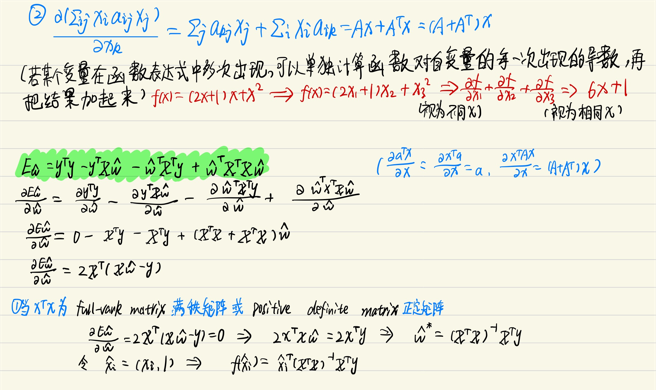 ② ∂(Σij xi aij xj)/∂xk = Σj akj xj + Σi xi aik = Ax + Aᵀx = (A+Aᵀ)x
(若某个变量在函数表达式中多次出现,可以单独计算函数对自变量的每一次出现的导数,再
把结果加起来) f(x) = (2x+1)x+x² ⇒ f(x) = (2x₁+1)x₂ + x₃² ⇒ ∂f/∂x₁ + ∂f/∂x₂ + ∂f/∂x₃ ⇒ 6x+1
(视为不同x) (视为相同x)
Eŵ = yᵀy - yᵀXŵ - ŵᵀXᵀy + ŵᵀXᵀXŵ (∂aᵀx/∂x = ∂xᵀa/∂x = a, ∂xᵀAx/∂x = (A+Aᵀ)x)
∂Eŵ/∂ŵ = ∂yᵀy/∂ŵ - ∂yᵀXŵ/∂ŵ - ∂ŵᵀXᵀy/∂ŵ + ∂ŵᵀXᵀXŵ/∂ŵ
∂Eŵ/∂ŵ = 0 - Xᵀy - Xᵀy + (XᵀX + XᵀX)ŵ
∂Eŵ/∂ŵ = 2Xᵀ(Xŵ-y)
①当XᵀX为 full-rank matrix 满秩矩阵 或 positive definite matrix 正定矩阵
∂Eŵ/∂ŵ = 2Xᵀ(Xŵ-y) = 0 ⇒ 2XᵀXŵ = 2Xᵀy ⇒ ŵ* = (XᵀX)⁻¹Xᵀy
令 x̂i = (xi, 1) ⇒ f(x̂i) = x̂iᵀ(XᵀX)⁻¹Xᵀy